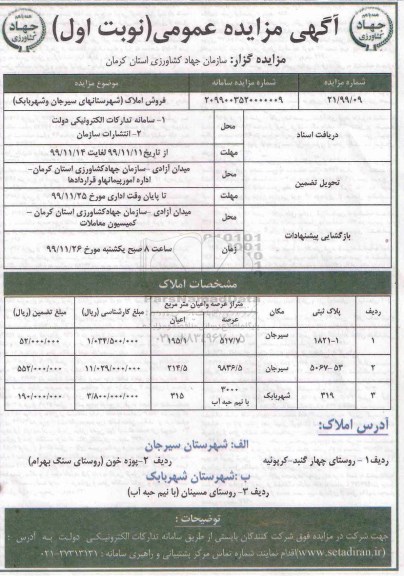 آگهی مزایده عمومی(نوبت اول)
مزایده گزار: سازمان جهاد کشاورزی استان کرمان
شماره مزایده	شماره مزایده سامانه	موضوع مزایده
۲۱/۹۹/۰۹	۲۰۹۹۰۰۳۵۲۰۰۰۰۰۰۹	فروش املاک (شهرستانهای سیرجان وشهربابک)
دریافت اسناد	محل	۱- سامانه تدارکات الکترونیکی دولت
۲- انتشارات سازمان
مهلت	از تاریخ ۹۹/۱۱/۱۱ لغایت ۹۹/۱۱/۱۴
تحویل تضمین	محل	میدان آزادی -سازمان جهادکشاورزی استان کرمان-
اداره امورپیمانهاو قراردادها
مهلت	تا پایان وقت اداری مورخ ۹۹/۱۱/۲۵
بازگشایی پیشنهادات	محل	میدان آزادی -سازمان جهادکشاورزی استان کرمان -
کمیسیون معاملات
زمان	ساعت ۸ صبح یکشنبه مورخ ۹۹/۱۱/۲۶
مشخصات املاک
ردیف	پلاک ثبتی	مکان	متراژ عرصه واعیان متر مربع	مبلغ کارشناسی (ریال)	مبلغ تضمین (ریال)
عرصه	اعیان
۱	۱۸۲۱-۱	سیرجان	۵۱۷/۷	۱۹۵/۱	۱/۰۳۴/۵۰۰/۰۰۰	۵۲/۰۰۰/۰۰۰
۲	۵۰۶۷-۵۳	سیرجان	۹۸۳۶/۵	۲۱۴/۵	۱۱/۰۲۹/۰۰۰/۰۰۰	۵۵۲/۰۰۰/۰۰۰
۳	۳۱۹	شهربابک	۳۰۰۰
با نیم حبه آب	۳۱۵	۳/۸۰۰/۵۰۰/۰۰۰	۱۹۰/۰۰۰/۰۰۰
آدرس املاک:
الف: شهرستان سیرجان
ردیف۱ - روستای چهار گنبد-کرپوئیه	ردیف ۲-پوزه خون (روستای سنگ بهرام)
ب :شهرستان شهربابک
ردیف ۳- روستای مسینان (با نیم حبه آب)
توضیحات :
جهت شرکت در مزایده فوق شرکت کنندگان بایستی از طریق سامانه تدارکات الکترونیکی دولت به آدرس :
(www.setadiran.ir)اقدام نمایند. شماره تماس مرکز پشتیبانی و راهبری سامانه : ۲۷۳۱۳۱۳۱-۰۲۱